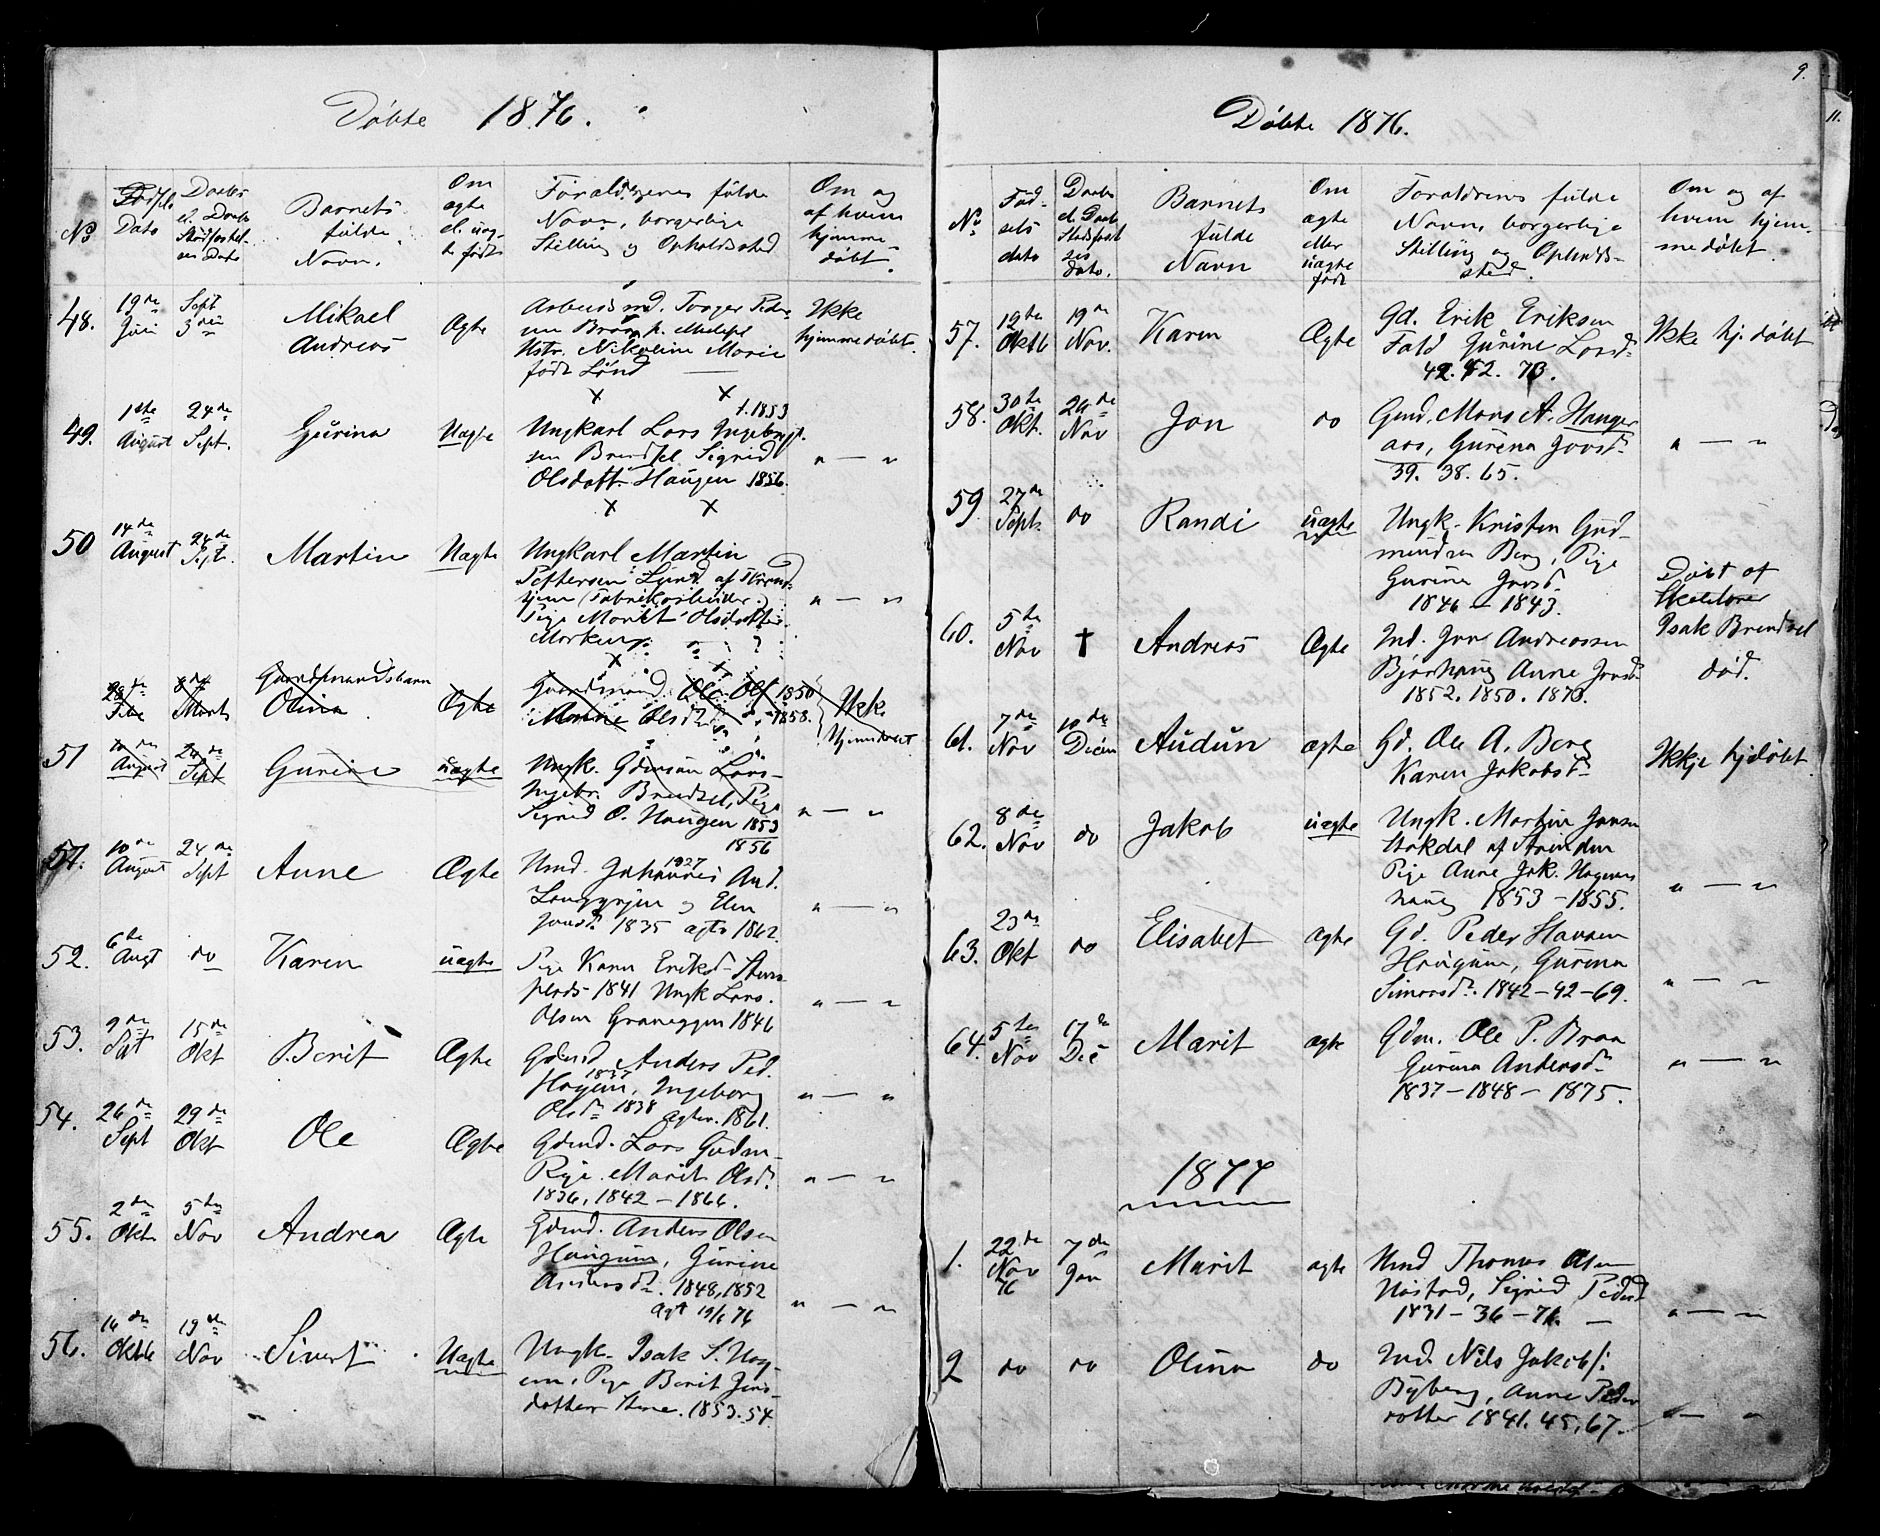 Døbte 1876.
No
Fødsels
Dato
Daabs
el. Daabs
Stadfæstel-
ses Dato
Barnets
fulde
Navn.
Om
ægte
el. uæg-
te født
Forældrenes fulde
Navn, borgerlige
Stilling og Opholdssted
Om og
af hvem
hjemme-
døbt.
48.
19de
Juni
Sept
3die
Mikael
Andreas
Ægte
Arbeidsmd. Torger Peder-
sen
Hstr. Nikoline Marie
født Lund
Ikke
hjemmedøbt
49.
1ste
August
24de
Sept.
Gurina
Uægte
f. 1853
Ungkarl Lars Ingebrigt-
sen Brendsel Sigrid
Olsdatt. Haugen 1856.
" — "
50
14de
August
24de
Sept.
Martin
Uægte
Ungkarl Martin
Pettersen Lund af Trond-
hjem (Fabrikarbeider.)
Pige Marit Olsdatter
Morken
" — "
28de
Feb
Marts
Gaardmandsbarn
Olina
Ægte
Gaardmand. Ole Ols 1850
Olsd 1858.
Ikke
hjemdøbt
51
10de
August
24de
Sept
Gurine
uægte
Ungk. Lars
Ingebr. Brendsel, Pige
Sigrid O. Haugen 1853
1856
" — "
51.
10de
August
24de
Sept
Anne
Ægte
Hmd. Johannes And. 1827
og Elen
Jonsd. 1835 ægte 1862.
" — "
52.
6te
Augt
do
Karen
uægte
Pige Karen Eriksd.
1841 Ungk Lars
Olsen 1846
" — "
53.
9de
Spt
15de
Okt
Berit
Ægte
Gdmd Anders Ped.
1837
Haugum, Ingeborg
Olsd 1838 ægtev. 1861.
" — "
54.
26de
Sept
29de
Okt
Ole
Ægte
Gdmd. Lars Gudm-
Rye. Marit Olsd.
1836, 1842 — 1866.
" — "
55.
2den
Okt
5te
Nov
Andrea
Ægte
Gdmd. Anders Olsen
Haugum, Gurine
Andersd. 1848, 1852
Ægt 19/6 76
" — "
56.
16de
Oktb
19de
Nov
Sivert
Uægte
Ungk. Isak S. Haug-
en, Pige Berit Jons-
datter 1853. 54.
9.
11.
Døbte 1876.
No
Fød-
sels
dato
Daabs
el. Daabs
Stadfæst
ses
dato.
Barnets
fulde
Navn
Om
ægte
eller
uægte
født
Forældrenes fulde
Navn, borgerlige
Stilling og Opholds-
sted.
Om og af
hvem hjem-
medøbt.
57.
12te
Oktb
19de
Nov.
Karen
Ægte
Gd. Erik Eriksen
Fald Gurine Larsd.
42. 52. 73.
Ikke hj. døbt
58.
30te
Okt.
26de
Nov
Jon
do
Gmd. Mons A. Hauger
aas, Gurena Jonsd.
39. 38. 65.
" — "
59
27de
Sept.
do
Randi
uægte
Ungk. Kristen Gud-
mundsen Berg, Pige
Gurine Jonsd.
1846 — 1843.
60.
5te
Nov
†
Andreas
Ægte
Ind. Jon Andreassen
Bjørhaug Anne Jonsd
1852. 1850. 1873.
Døbt af
Skolelærer
Isak Brendsel
død.
61.
7de
Nov
10de
Decem
Audun
ægte
Gd. Ole A. Berg
Karen Jakobsd.
Ikkje hjdøbt
62.
8de
Nov
do
Jakob
uægte
Ungk. Martin Jonsen
Stokdal af Strinden
Pige Anne Jak. Hagens
haug 1853 — 1855.
" — "
63.
23de
Okt
do
Elisabet
ægte
Gd. Peder Hansen
Haugum, Gurena
Simonsd. 1842—42—69.
" — "
64.
5te
Nov
17de
Dec
Marit
ægte
Gdm. Ole P. Braa
Gurena Andersd.
1837 — 1848 — 1875.
" — "
1877
1.
22de
Nov
76
7de
Jan
Marit
ægte
Hmd Thomas Olsen
Næstad, Sigrid Pedersd
1831 — 36 — 71.
" — "
2
do
do
Olina
do
Ind. Nils Jakobs.
Byberg, Anne Peder
datter 1841. 45, 67.
" — "